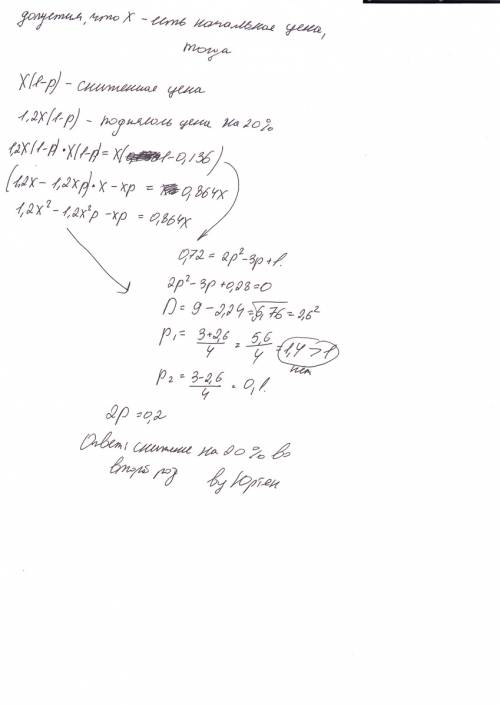 допустим, что X - есть начальная цена,
тогда
X(1-p) - сниженная цена
1,2X(1-p) - поднялась цена на 20%
1,2X(1-p)·X(1-p)=X(1-0,136)
(1,2X - 1,2Xp)·X - xp = 0,864X
1,2X² - 1,2X²p - xp = 0,864X
0,72 = 2p²-3p+1.
2p²-3p+0,28=0
D = 9 - 2,24 = √6,76 = 2,6²
P₁ = 3+2,6/4 = 5,6/4 = 1,4 > 1
нет
P₂ = 3-2,6/4 = 0,1.
2p = 0,2
Ответ: снижение на 20% во
второй раз
by Юртен